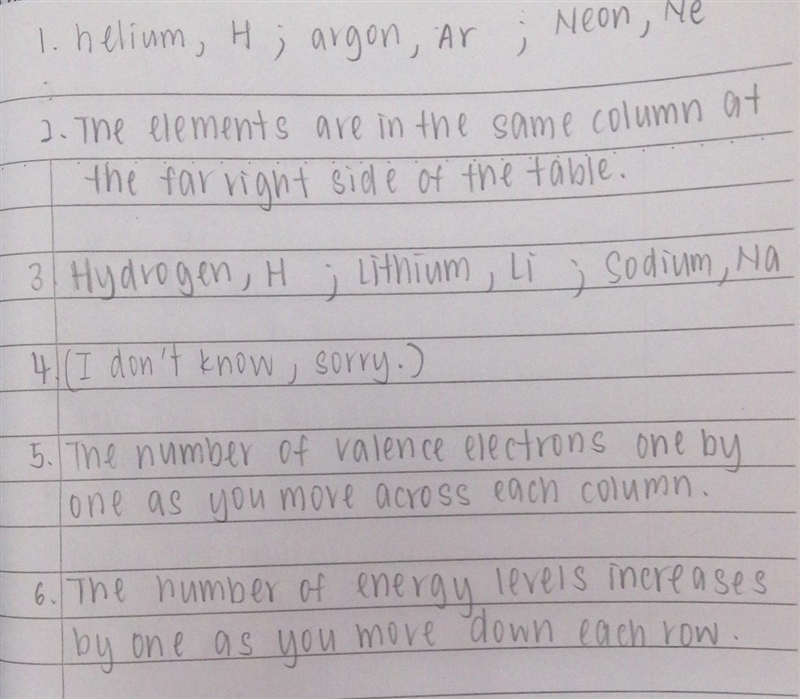 1. helium, H ; argon, Ar ; Neon, Ne
2. The elements are in the same column at
the far right side of the table.
3 Hydrogen, H ; Lithium, Li ; Sodium, Na
4. (I don't know, sorry.)
5. The number of valence electrons one by
one as you move across each column.
6. The number of energy levels increases
by one as you move down each row.